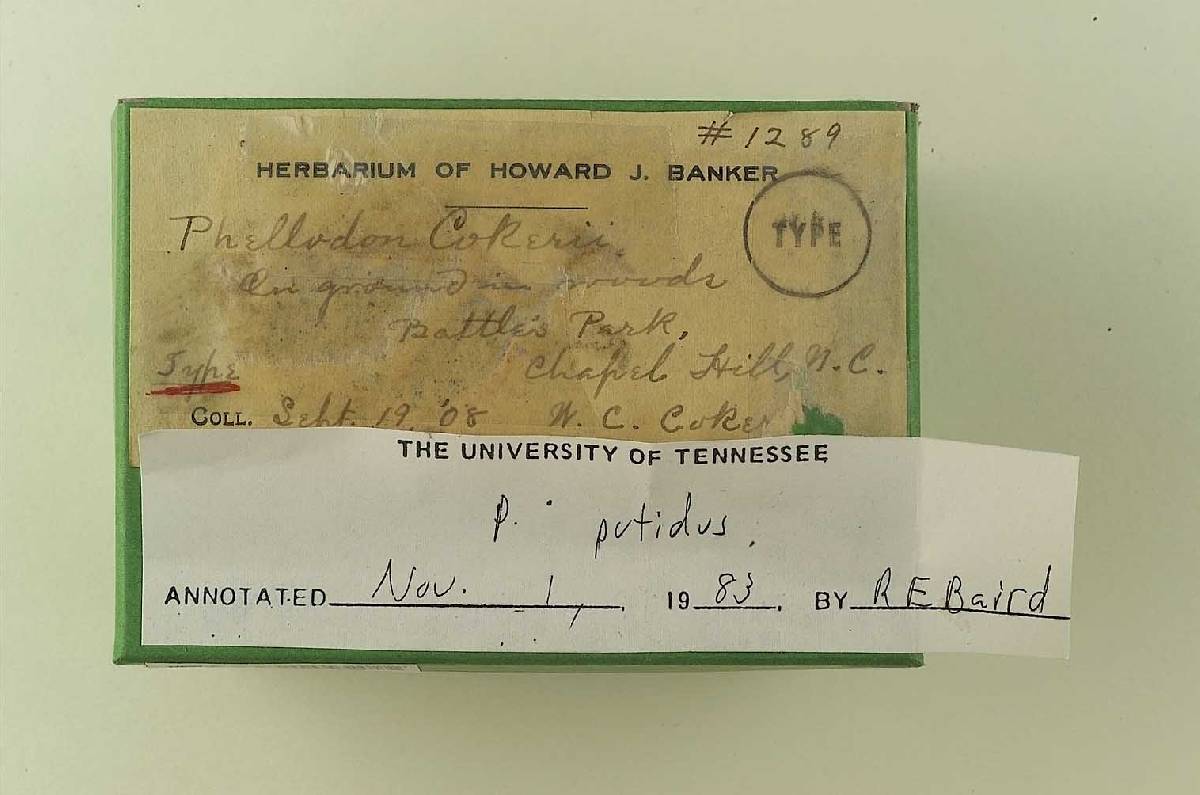 #1289
HERBARIUM OF HOWARD J. BANKER
Phellodon Cokerii
TYPE
On ground in woods
Battle's Park,
Type
Chapel Hill, N.C.
COLL. Sept. 19, '08 W. C. Coker
THE UNIVERSITY OF TENNESSEE
P. putidus.
ANNOTATED Nov. 1, 1983. BY R E Baird